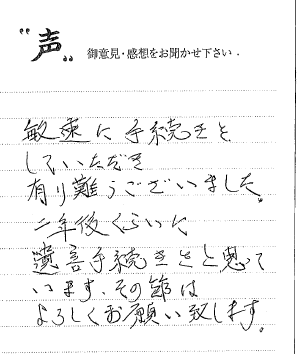 "声"
御意見・感想をお聞かせ下さい.
敏速に手続きを
していただき
有り難うございました。
二年後くらいに
遺言手続きをと思って
います、その節は
よろしくお願い致します。